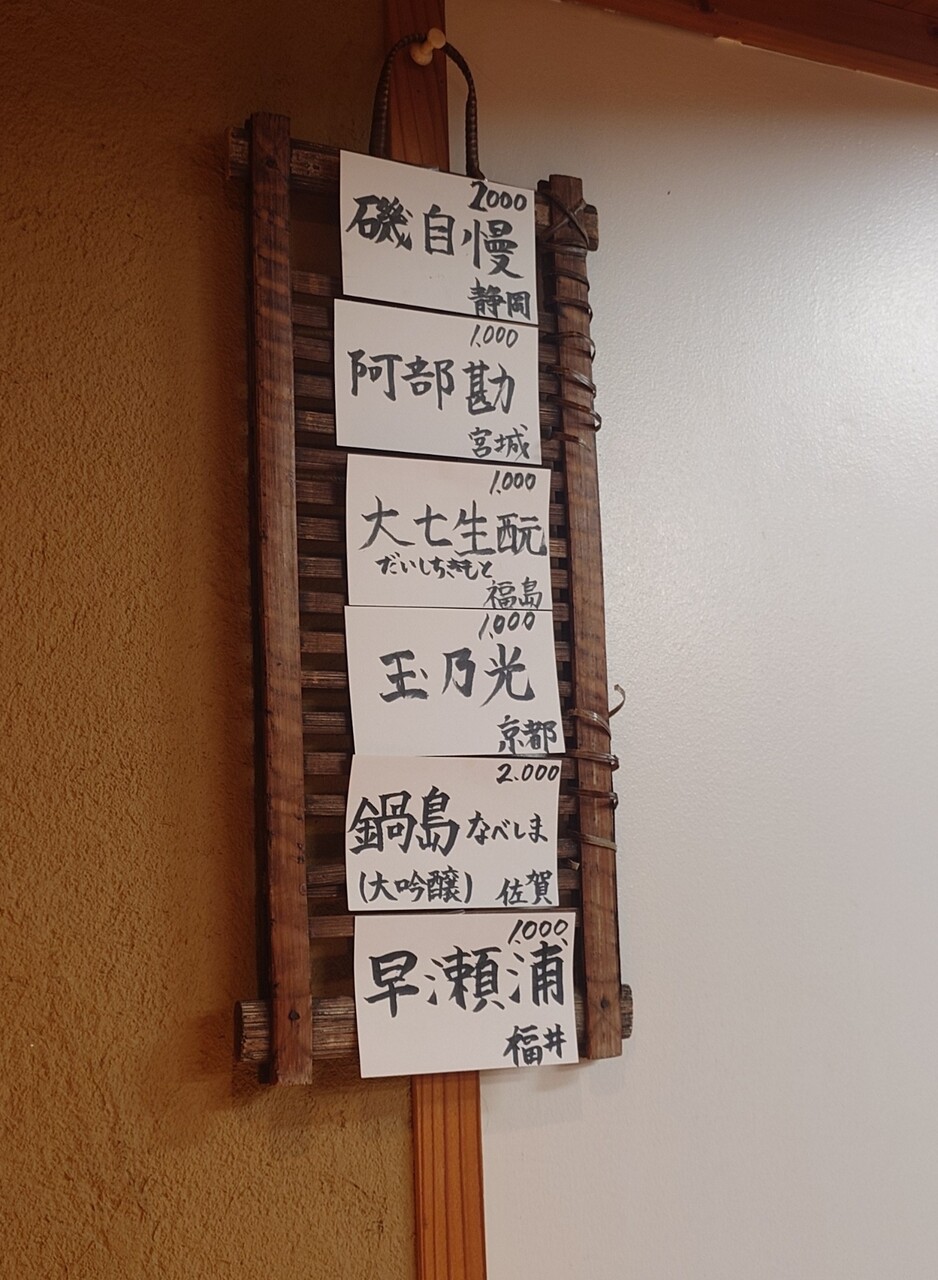 2000
磯自慢
静岡
1,000
阿部勘
宮城
1,000
大七生酛
だいしちきもと
福島
1,000
玉乃光
京都
2.000
鍋島 なべしま
(大吟醸) 佐賀
1,000
早瀬浦
福井